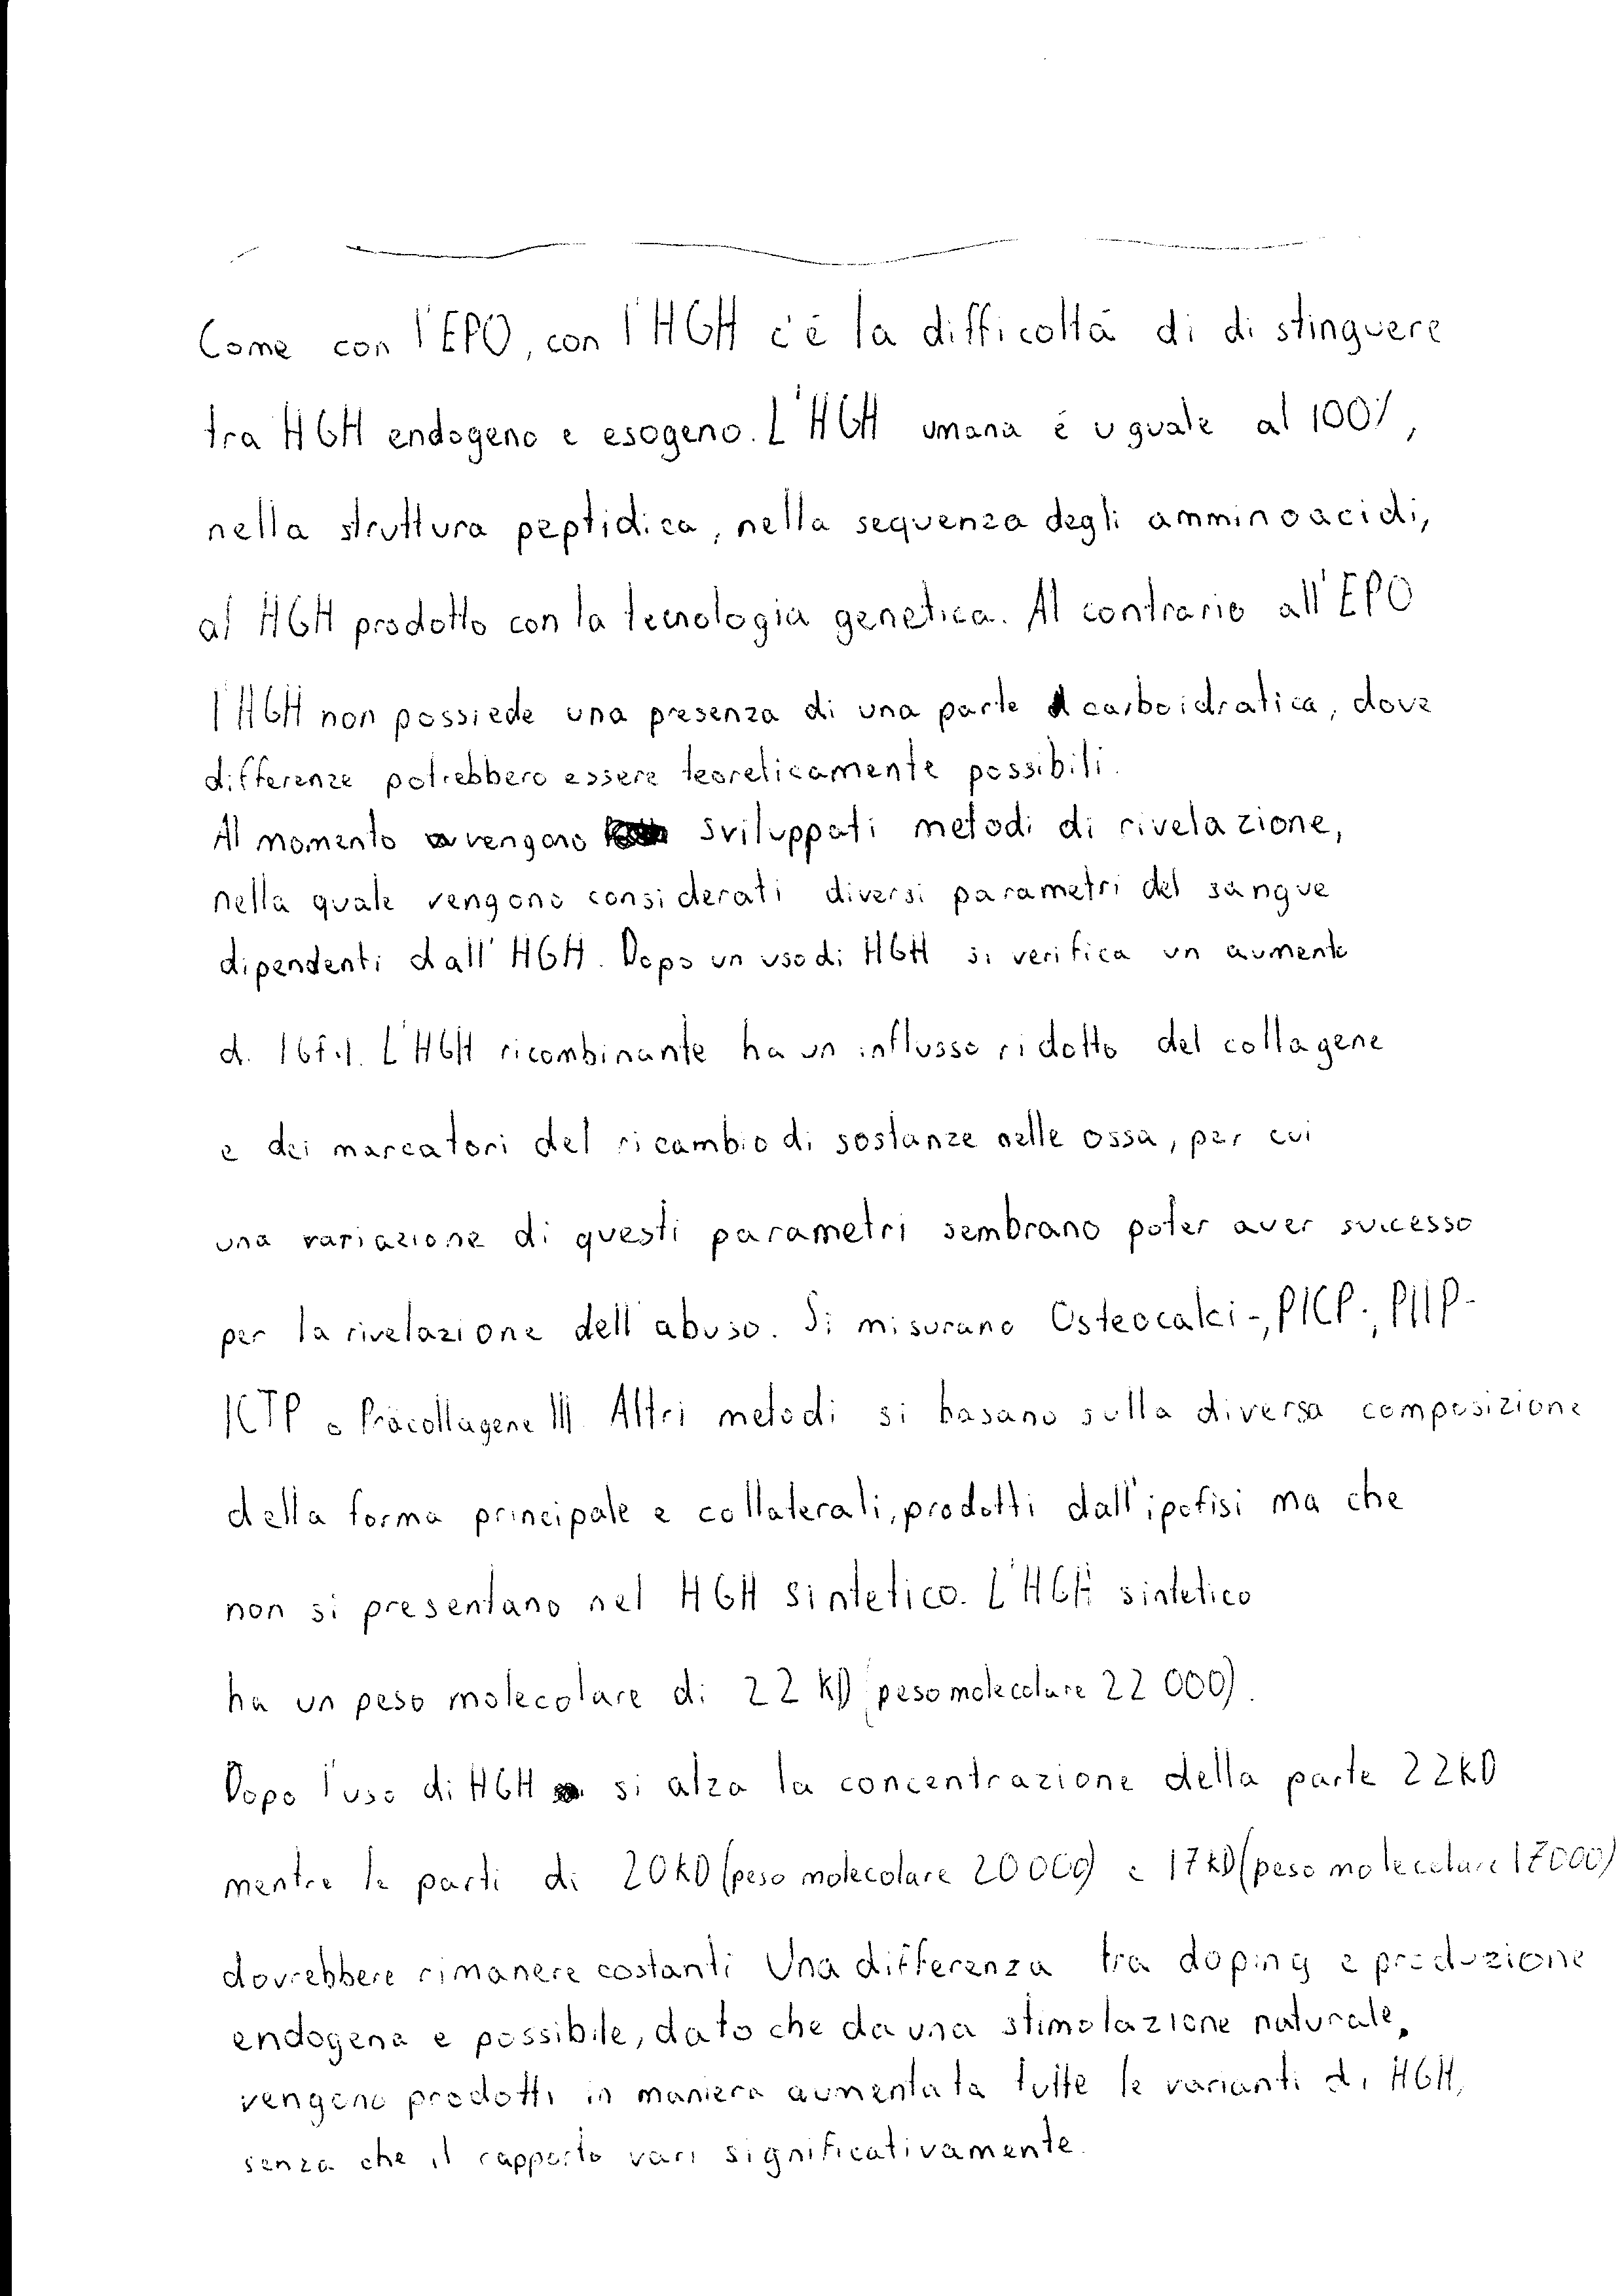 Come con l'EPO, con l'HGH c'é la difficoltá di distinguere
tra HGH endogeno e esogeno. L'HGH umana é uguale al 100%,
nella struttura peptidica, nella sequenza degli amminoacidi,
al HGH prodotto con la tecnologia genetica. Al contrario all'EPO
l'HGH non possiede una presenza di una parte carboidratica, dove
differenze potrebbero essere teoreticamente possibili.
Al momento vengono sviluppati metodi di rivelazione,
nella quale vengono considerati diversi parametri del sangue
dipendenti dall'HGH. Dopo un uso di HGH si verifica un aumento
di L'HGH ricombinante ha un influsso ridotto del collagene
e dei marcatori del ricambio di sostanze nelle ossa, per cui
una variazione di questi parametri sembrano poter aver successo
per la rivelazione dell'abuso. Si misurano Osteocalci-, PICP-, PIIP-
ICTP o Präcollagene III. Altri metodi si basano sulla diversa composizione
della forma principale e collaterali, prodotti dall'ipofisi ma che
non si presentano nel HGH sintetico. L'HGH sintetico
ha un peso molecolare di 22 KD (peso molecolare 22 000).
Dopo l'uso di HGH si alza la concentrazione della parte 22kD
mentre le parti di 20kD (peso molecolare 20000) e 17kD (peso molecolare 17000)
dovrebbere rimanere costanti Una differenza tra doping e produzione
endogena e possibile, dato che da una stimolazione naturale,
vengono prodotti in maniera aumentata tutte le varianti di HGH,
senza che il rapporto vari significativamente.